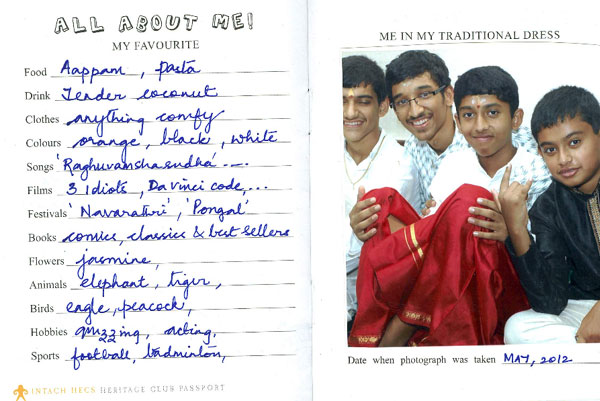 ALL ABOUT ME!
MY FAVOURITE
Food Aappam, pasta
Drink Tender coconut
Clothes anything comfy
Colours orange, black, white
Songs 'Raghuvamshasudha' ....
Films 3 Idiots, Da vinci code,...
Festivals 'Navarathri', 'Pongal'
Books comics, classics & best sellers
Flowers jasmine,
Animals elephant, tiger,
Birds eagle, peacock,
Hobbies quizzing, acting,
Sports football, badminton,
INTACH HECS HERITAGE CLUB PASSPORT
ME IN MY TRADITIONAL DRESS
Date when photograph was taken MAY, 2012